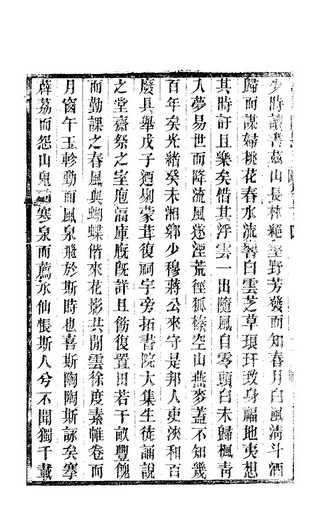 少時讀書慈山長林絶壑野芳發而知春月白風淸斗酒
歸而謀婦桃花春水流響白雲芝草琅玕致身福地夷想
其時訏且樂矣惜其浮雲一出隨風自零頭白未歸楓靑
入夢易世而降流風遂湮荒徑狐緣空山燕麥蓋不知幾
百年矣光緒癸未湘鄕少穆蔣公來守是邦人吏浹和百
廢具舉戊子迺剔蒙茸復祠字旁拓書院大集生徒誦說
之堂齋祭之室庖湢庫廐旣詳且飭復置田若干畝豐餽
而勤課之春風與蝴蝶偕來花影共閒雲徐度素帷卷而
月窗午玉軫動而風泉飛於斯時也喜斯陶陶斯詠矣搴
薜荔而怨山鬼 寒泉而薦水仙悵斯人兮不聞獨千載